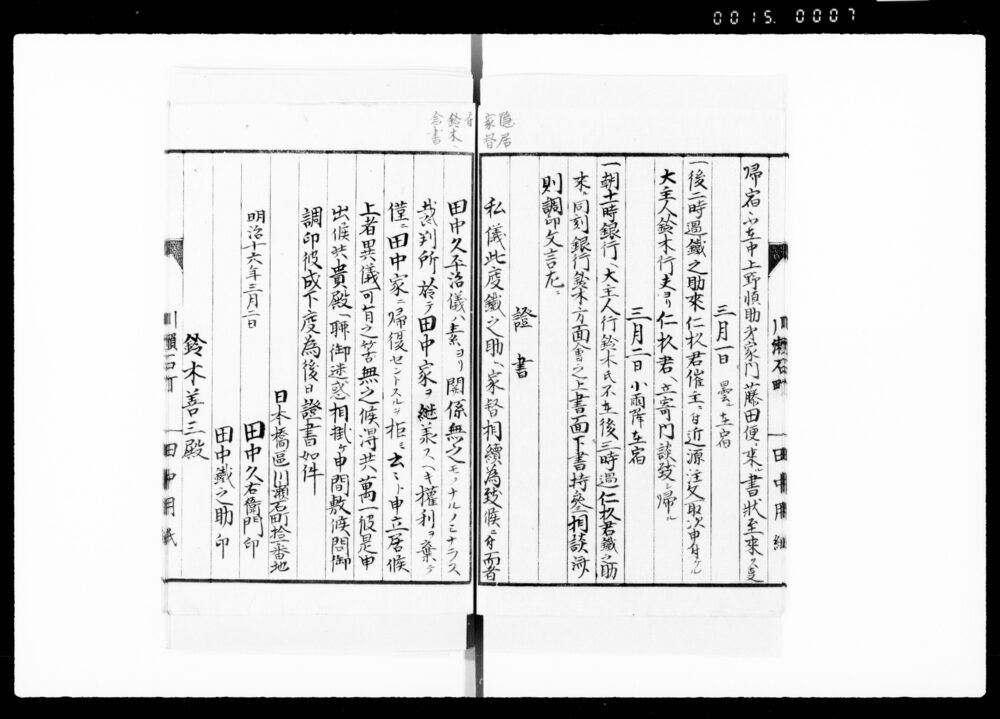 0015.0007
隠居
家督
ニ付
鈴木ヘ
念書
帰宿不在中上野慎助ゟ家門藤田便ニ来ル書状至来ス
三月一日 曇 在宿
一後二時過鐵之助来仁杉君催主ニ付近源注文取次申付ケル
大主人鈴木行夫ヨリ仁杉君ヘ立寄門談致シ帰ル
三月二日 小雨降 在宿
一朝十一時銀行ヘ大主人行鈴木氏不在後三時過仁杉君鐵之助
来ル同刻銀行鈴木方面會之上書面下書持参相談済
則調印文言左ニ
證書
私儀此度鐵之助ヘ家督相續為致候ニ付而者
田中久平治儀ハ素ヨリ関係無之モノナルノミナラス
裁判所ニ於テ田中家ヲ継美スヘキ權利ヲ棄テ
僅ニ田中家ニ帰復セントスルヲ拒ミ云々ト申立居候
上者異儀可有之筈無之候得共萬一彼是申
出候共貴殿ヘ聊御迷惑相掛ケ申間敷候間御
調印被成下度為後日證書如件
日本橋區川瀬石町拾番地
明治十六年三月二日
田中久右衛門 印
田中鐵之助 印
鈴木善三殿
川瀬石町
田中用紙